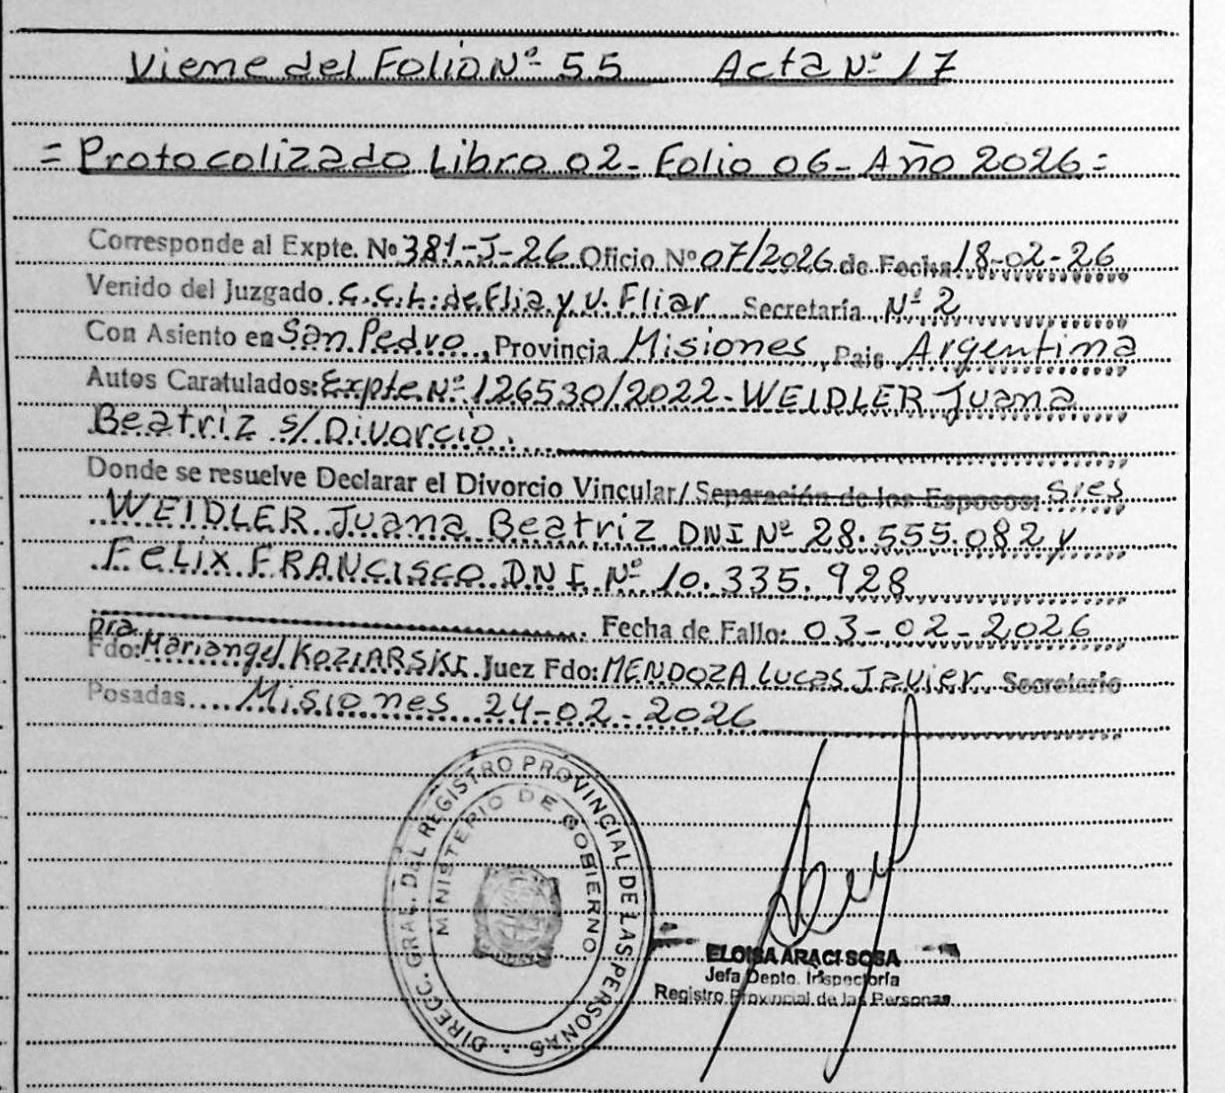 Viene del Folio Nº 55 Acta Nº 17
= Protocolizado Libro 02 - Folio 06 - Año 2026 =
Corresponde al Expte. Nº 381-J-26 Oficio Nº 07/2026 de Fecha 18-02-26
Venido del Juzgado C.C.L. de Flia y V. Fliar Secretaría Nº 2
Con Asiento en San Pedro, Provincia Misiones, Pais Argentina
Autos Caratulados: Expte Nº 126530/2022 - WEIDLER Juana
Beatriz s/ Divorcio.
Donde se resuelve Declarar el Divorcio Vincular/Separación de los Esposos: Sres
WEIDLER Juana Beatriz DNI Nº 28.555.082 y
Felix FRANCISCO DNI Nº 10.335.928
Fecha de Fallo: 03-02-2026
Fdo: Dra Mariangel KOZIARSKI Juez Fdo: MENDOZA Lucas Javier Secretario
Posadas.... Misiones 24-02-2026
DIRECC. GRAL. DEL REGISTRO PROVINCIAL DE LAS PERSONAS
MINISTERIO DE GOBIERNO
ELOISA ARACI SOSA
Jefa Depto. Inspectoría
Registro Provincial de las Personas